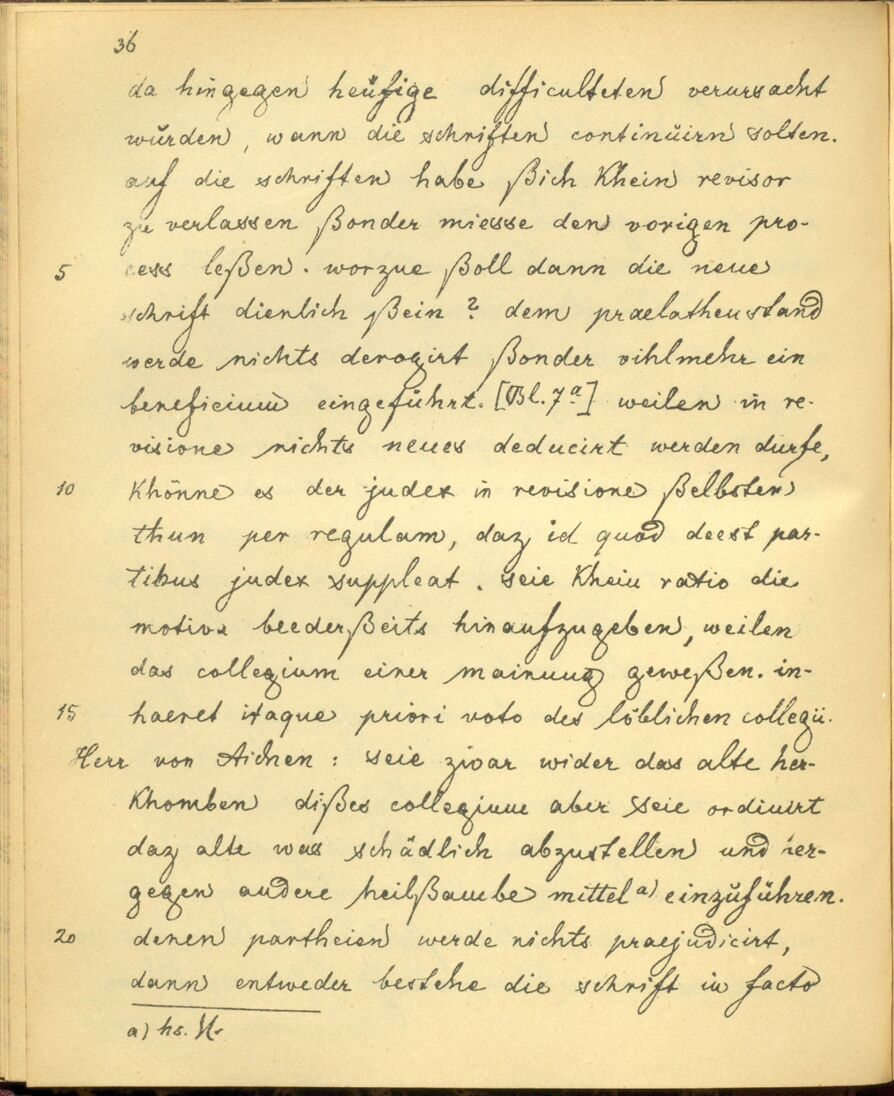 36
da hingegen heüfige difficulteten verursacht
würden, wann die schriften continüirn solten.
auf die schriften habe ßich Khein revisor
zu verlassen ßonder miesse den vorigen pro-
5 cess leßen. worzue ßoll dann die neue
schrift dienlich ßein? dem praelathenstand
werde nichts derogirt ßonder vihlmehr ein
beneficium eingeführt. [Bl. 7a] weilen in re-
visione nichts neues deducirt werden durfe,
10 Khönne es der judex in revisione ßelbsten
thun per regulam, daz id quod deest par-
tibus judex suppleat. seie Khein ratio die
motiva beederßeits hinaufzugeben, weilen
das collegium einer mainung geweßen. in-
15 haeret itaque priori voto des löblichen collegii.
Herr von Aichen: seie zwar wider das alte her-
Khomben dißes collegium aber seie ordinirt
daz alte was schädlich abzustellen und her-
gegen andere heilßambe mittel a) einzuführen.
20 denen partheien werde nichts praejudicirt,
dann entweder bestehe die schrift in facto
a) hs.